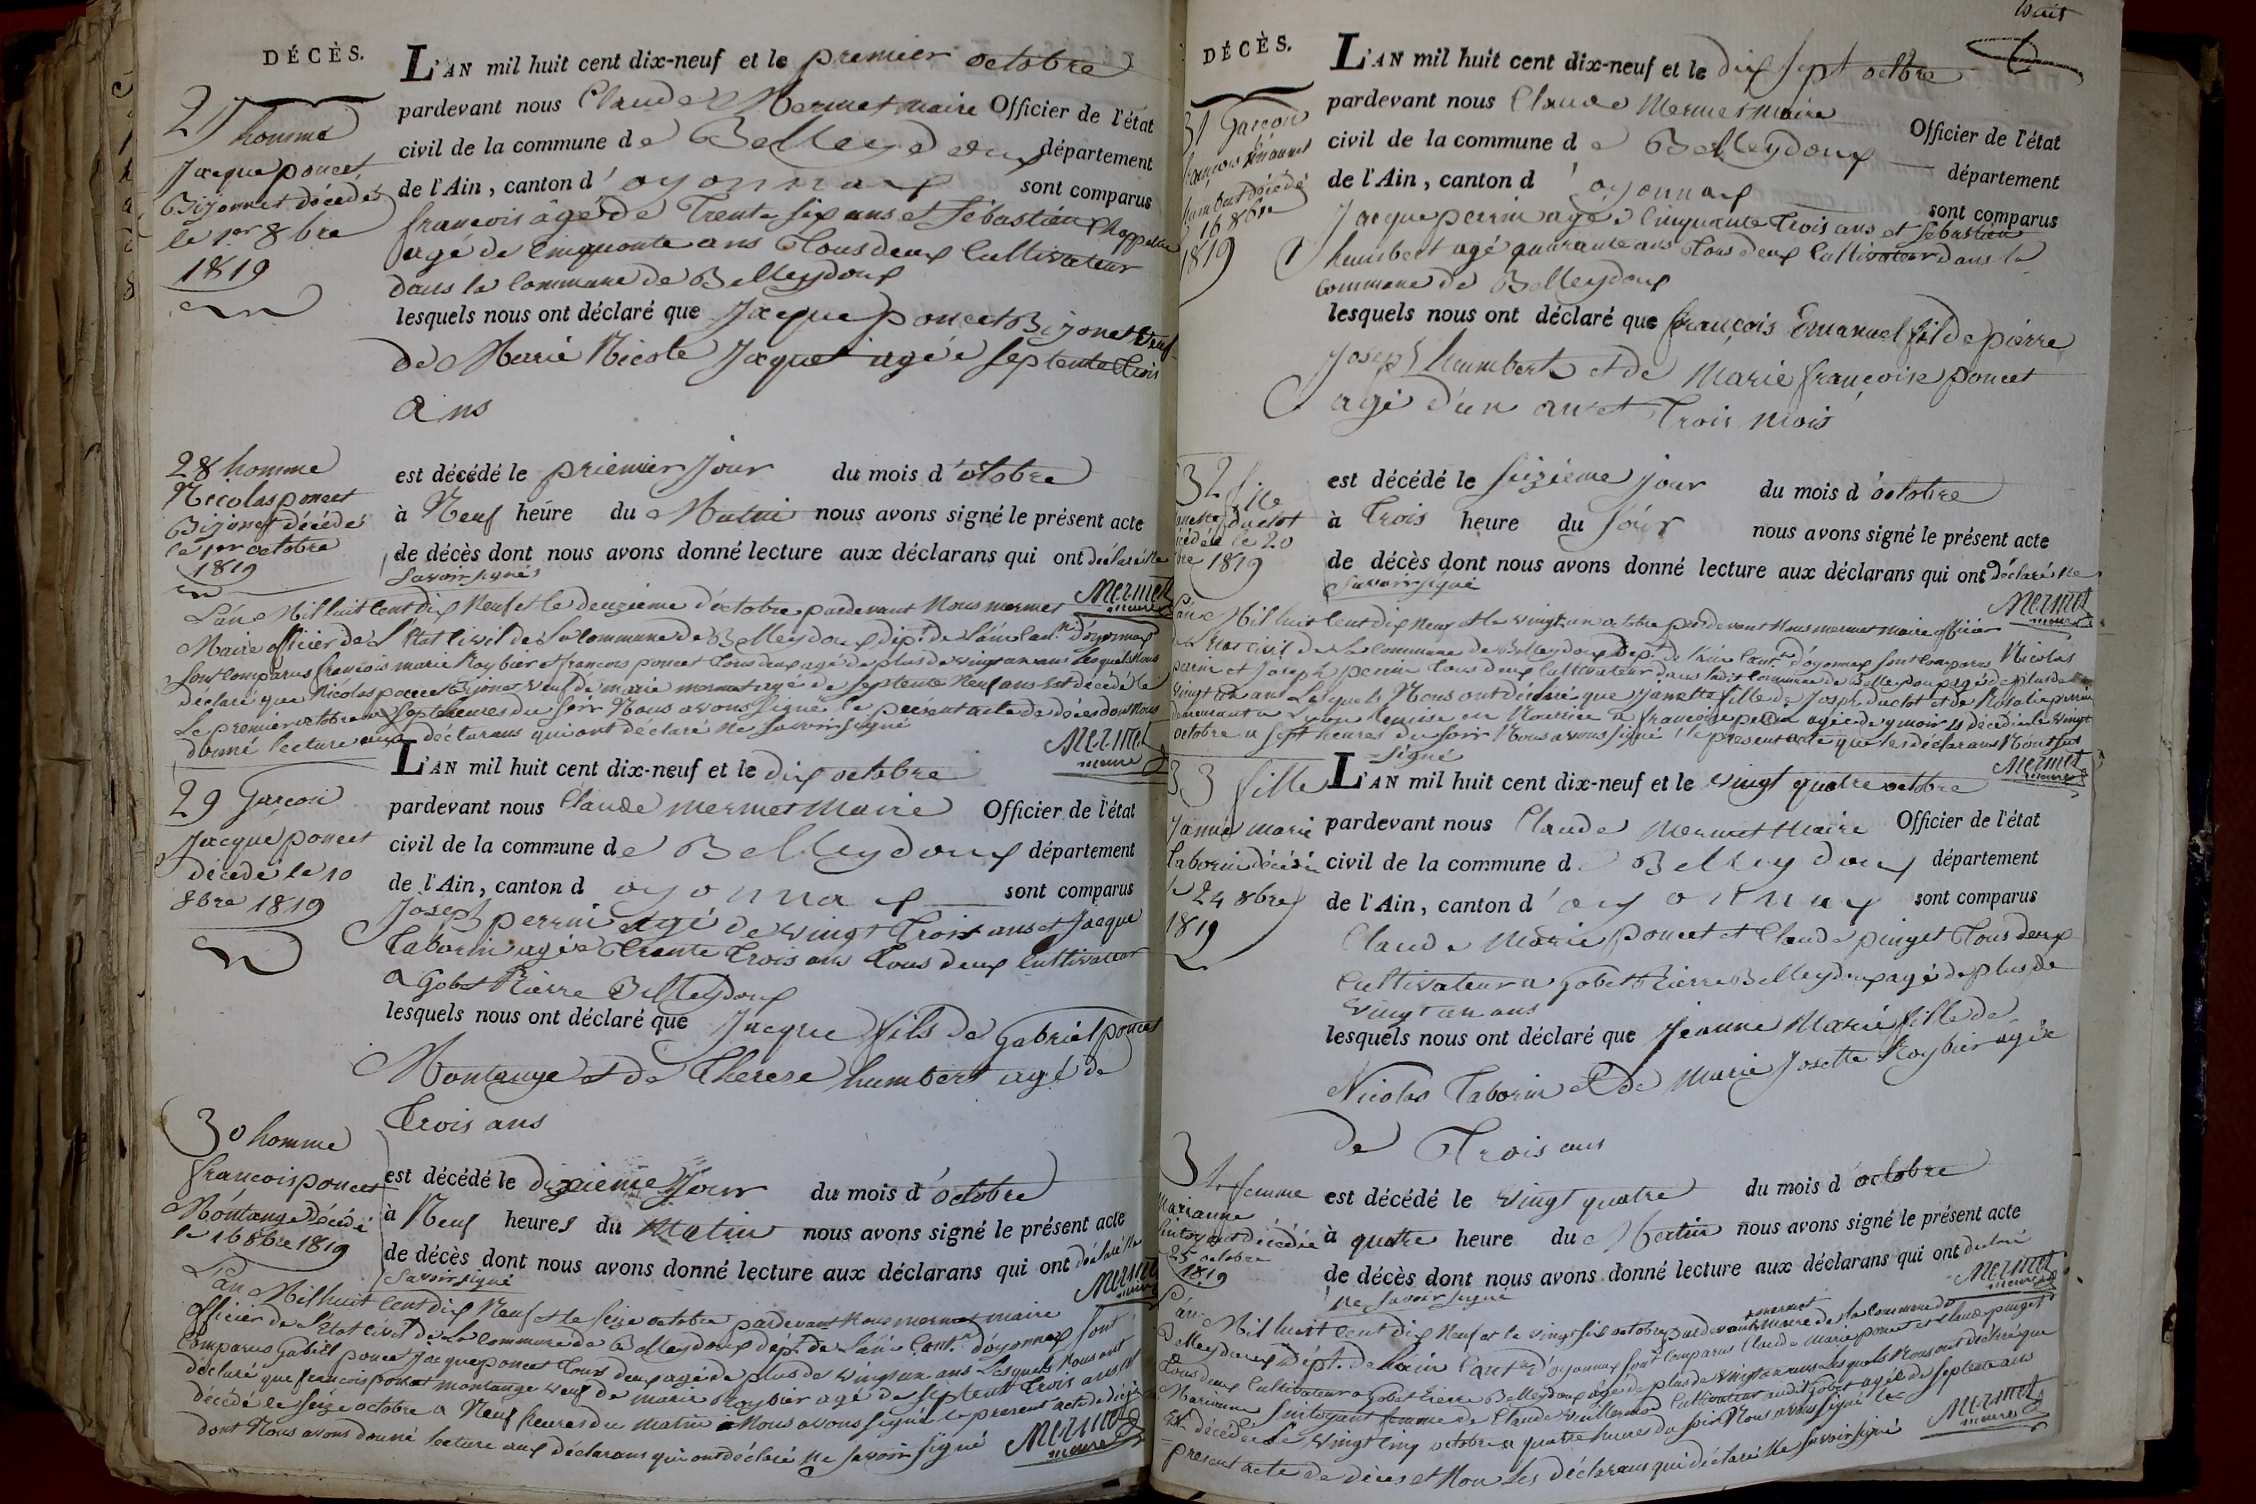 DÉCÈS.
27 homme
Jacque poncet
Bijonnet décédé
le 1er 8bre
1819
L'AN mil huit cent dix-neuf et le premier octobre
pardevant nous Claude Mermet maire Officier de l'état
civil de la commune de Belleydoux département
de l'Ain, canton d'oyonnax sont comparus
francois âgé de Trente six ans et Sébastien
agé de Cinquante ans Tous deux Cultivateur
dans la Commune de Belleydoux
lesquels nous ont déclaré que Jacque poncet Bijonet veuf
de Marie Nicole Jaquet agé septente Trois
ans
28 homme
Nicolas poncet
Bijonet décédé
le 1er octobre
1819
est décédé le premier Jour du mois d'octobre
à Neuf heure du Matin nous avons signé le présent acte
de décès dont nous avons donné lecture aux déclarans qui ont déclaré Ne
savoir signés
Mermet
maire
L'an Mil huit Cent Dix Neuf et le deuzieme d'octobre pardevant Nous mermet
Maire officier de L'Etat Civil de la Commune de Belleydoux dépt. de L'ain Cant.n d'oyonnax
Sont Comparus francois marie Roybier et francois poncet Tous deux agé de plus de vingt un ans Lesquels Nous
déclaré que Nicolas poncet Bijonet veuf de marie mermet agé de septente Neuf ans est décédé le
Le premier octobre a sept heures du soir Nous avons Signé le present acte de décès dont Nous
donné lecture aux déclarans qui ont déclaré Ne savoir signé
Mermet
maire
29 Garçon
Jacque poncet
décédé le 10
8bre 1819
L'AN mil huit cent dix-neuf et le dix octobre
pardevant nous Claude mermet Maire Officier de l'état
civil de la commune de Belleydoux département
de l'Ain, canton d oyonnax sont comparus
Joseph perrin agé de vingt Trois ans et Jacque
Taborin agé Trente Trois ans Tous deux Cultivateur
a Gobet Rierre Belleydoux
lesquels nous ont déclaré que Jacque fils de Gabriel poncet
Montange et de Therese humbert agé de
Trois ans
30 homme
francois poncet
Montange Décédé
le 16 8bre 1819
est décédé le dixieme Jour du mois d'octobre
à Neuf heures du Matin nous avons signé le présent acte
de décès dont nous avons donné lecture aux déclarans qui ont déclaré Ne
savoir signé
Mermet
maire
L'an Mil huit Cent Dix Neuf et le Seize octobre pardevant Nous mermet maire
officier de L'Etat Civil de la Commune de Belleydoux dépt. de L'ain Cant.n d'oyonnax sont
Comparus Gabriel poncet Jacque poncet Tous deux agé de plus de vingt un ans Lesquels Nous ont
déclaré que francois poncet montange veuf de marie Roybier agé de septente Trois ans est
décédé le seize octobre a Neuf heures du matin Nous avons signé le present acte de décès
dont Nous avons donné lecture aux déclarans qui ont déclaré Ne savoir signé
Mermet
maire
huit
DÉCÈS.
31 Garçon
françois Emanuel
humbert décédé
16 8bre
1819
L'AN mil huit cent dix-neuf et le dix sept octbre
pardevant nous Claude Mermet Maire Officier de l'état
civil de la commune de Belleydoux département
de l'Ain, canton d'oyonnax sont comparus
Jacque perrin agé Cinquante Trois ans et Sébastien
humbert agé quarante ans Tous deux Cultivateur dans la
commune de Belleydoux
lesquels nous ont déclaré que françois Emanuel fil de pierre
Joseph humbert et de Marie françoise poncet
agé d'un an et Trois mois
32 fille
Janette Duclot
décédée le 20
8bre 1819
est décédé le seizième jour du mois d'octobre
à Trois heure du soir nous avons signé le présent acte
de décès dont nous avons donné lecture aux déclarans qui ont déclaré Ne
savoir signé
Mermet
maire
L'an Mil huit Cent Dix Neuf et le vingt un octobre pardevant Nous mermet maire officier
de L'Etat civil de la Commune de Belleydoux Dépt. de L'ain Cant.n d'oyonnax sont Comparus Nicolas
perrin et Joseph perrin Tous deux Cultivateur dans ladit Commune de Belleydoux agé de plus de
vingt un ans Lesquels Nous ont déclaré que Janette fille de Joseph Duclot et de Rosalie perrin
demeurant a Lyon remise en Nourice a françoise perrin agée de 9 mois décédée le vingt
octobre a sept heures du soir Nous avons signé le present acte que les déclarans N'ont sut
signé
Mermet
maire
33 fille
Janne Marie
Taborin décédé
le 24 8bre
1819
L'AN mil huit cent dix-neuf et le vingt quatre octobre
pardevant nous Claude Mermet Maire Officier de l'état
civil de la commune d e Belleydoux département
de l'Ain, canton d'oyonnax sont comparus
Claude Marie poncet et Claude pinget Tous deux
Cultivateur a Gobet Rierre Belleydoux agé de plus de
vingt un ans
lesquels nous ont déclaré que Jeanne Marie fille de
Nicolas Taborin et de Marie Josette Roybier agée
de Trois ans
34 femme
Marianne
décédée
25 octobre
1819
est décédé le vingt quatre du mois d'octobre
à quatre heure du Matin nous avons signé le présent acte
de décès dont nous avons donné lecture aux déclarans qui ont declaré
Ne savoir signé
Mermet
maire
L'an Mil huit Cent Dix Neuf et le vingt six octobre pardevant mermet maire de la Commune de
Belleydoux Dépt. de Lain Cant.n d'oyonnax sont Comparus Claude Marie poncet et Claude pinget
Tous deux Cultivateur a Gobet Rierre Belleydoux agé de plus de vingt un ans Lesquels Nous ont déclaré que
Marianne femme de Claude Vuillermoz Cultivateur audit Gobet agée de septente ans
Est décédée Le vingt Cinq octobre a quatre heures du soir Nous avons signé le
present acte de décès et Non Les déclarans qui déclaré Ne savoir signé
Mermet
maire